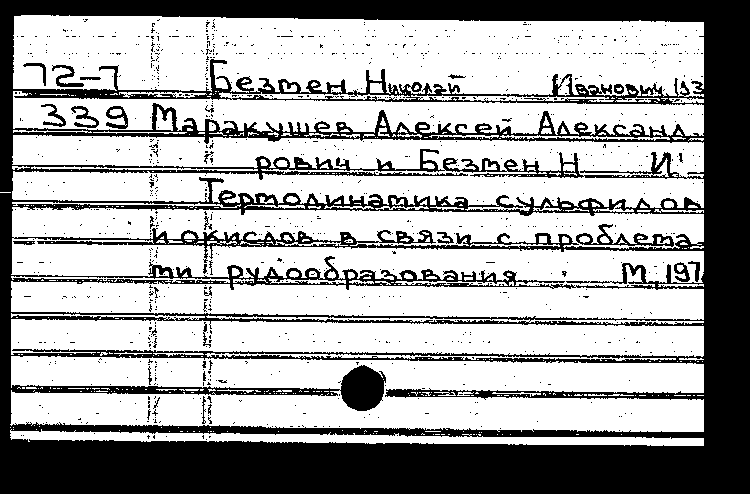 72-7 Безмен, Николай Иванович, 193
339 Маракушев, Алексей Александ-
рович и Безмен, Н И.
Термодинамика сульфидов
и окислов в связи с проблема-
ми рудообразования. М, 197